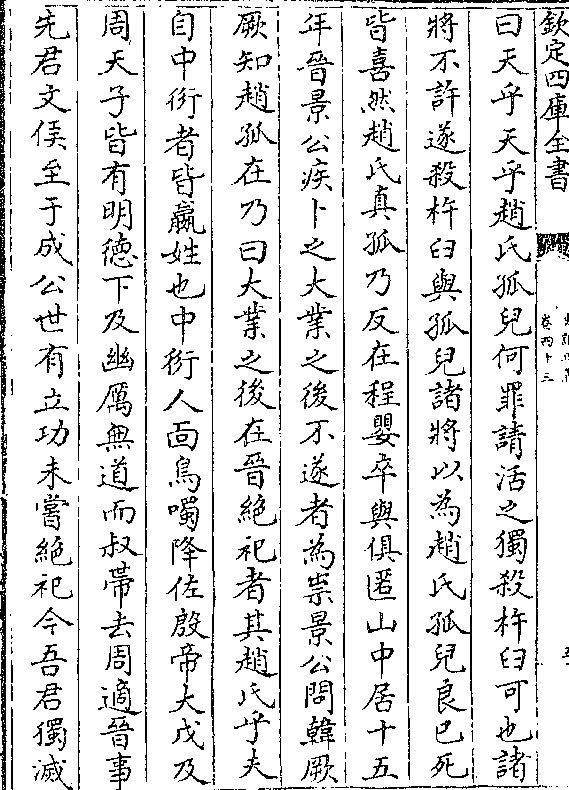 欽定四庫全書
卷四十三
曰天乎天乎趙氏孤兒何罪請活之獨殺杵臼可也諸
將不許遂殺杵臼與孤兒諸將以為趙氏孤兒良已死
皆喜然趙氏真孤乃反在程嬰卒與俱匿山中居十五
年晉景公疾卜之大業之後不遂者為祟景公問韓厥
厥知趙孤在乃曰大業之後在晉絶祀者其趙氏乎夫
自中衍者皆嬴姓也中衍人面鳥噣降佐殷帝大戊及
周天子皆有明德下及幽厲無道而叔帶去周適晉事
先君文侯至于成公世有立功未嘗絶祀今吾君獨滅